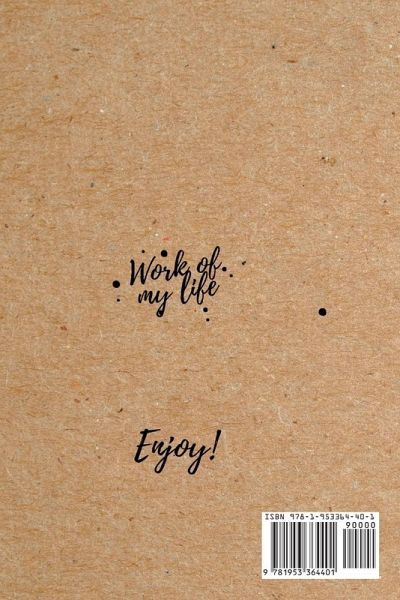 Work of
my life
Enjoy!
ISBN 978-1-953364-40-1
90000
9 781953 364401